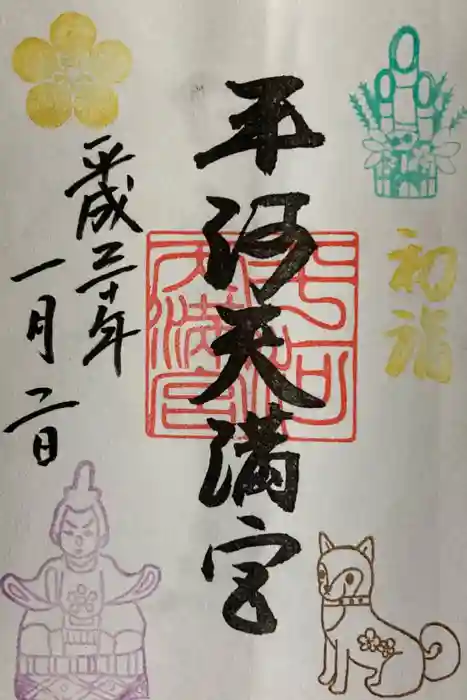 初詣
平河天満宮
平河
天満宮
平成三十年
一月二日